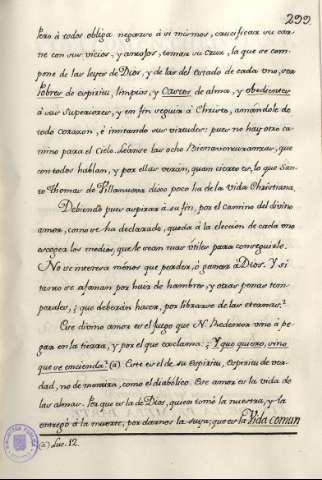 299.
Pero à todos obliga negarse à si mismos, crucificar su car-
ne con sus vicios, y antojos, tomar su cruz, la que se com-
pone de las leyes de Dios, y de las del estado de cada uno, ser
Pobres de espiritu, limpios, y Castos de alma, y obedientes
à sus Superiores, y en fin seguir à Christo, amandole de
todo corazon, è imitando sus virtudes: pues no hay otro ca-
mino para el Cielo. Leanse las ocho Bienaventuranzas, que
con todos hablan, y por ellas verán, quan cierto es, lo que San-
to Thomas de Villanueva dixo poco ha de la Vida Christiana.
Debiendo pues aspirar à su fin, por el camino del divino
amor, como se ha declarado, queda à la eleccion de cada uno
escoger los medios, que le sean mas utiles para conseguirle.
No se interesa menos que perder, ò ganar à Dios. Y si
tanto se afanan por huir de hambre, y otras penas tem-
porales, ¿que deberán hacer, por librarse de las eternas?
Este divino amor es el fuego que N. Redentor vino à pe-
gar en la tierra, y por el que exclama: ¿Y que quiero, sino
que se encienda? (a) Este es el de su espiritu, espiritu de ver-
dad, no de mentira, como el diabolico. Este amor es la vida de
las almas. Por que es la de Dios, quien tomó la nuestra, y la
entregó à la muerte, por darnos la suya; que es la Vida comun
(a) Luc. 12.